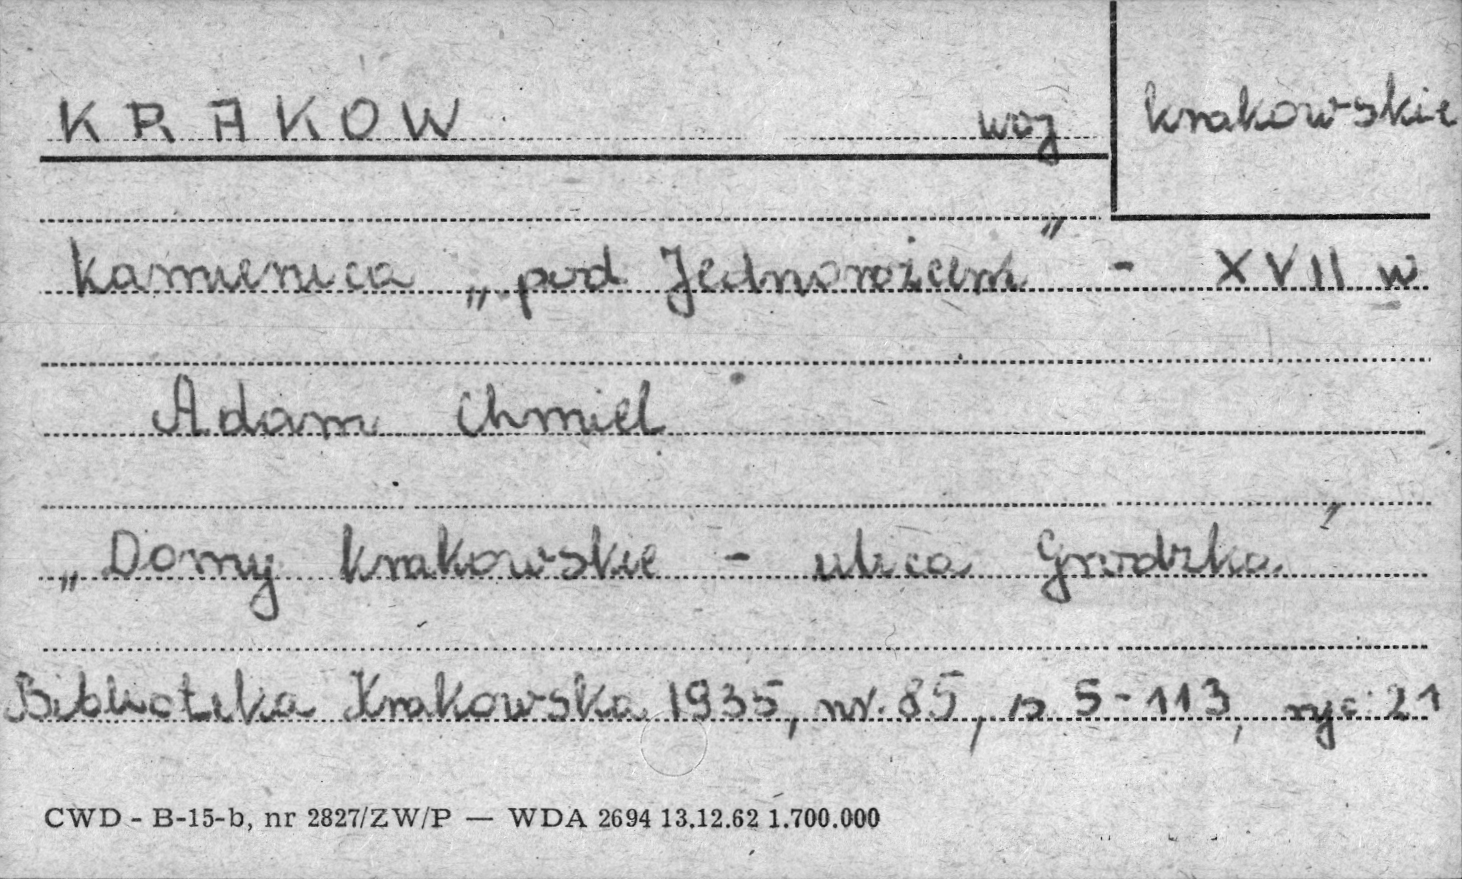 KRAKOW woj krakowskie
Kamienica „pod Jednorożcem” - XVII w
Adam Chmiel
„Domy krakowskie - ulica Grodzka”
Biblioteka Krakowska 1935, nr. 85, s 5-113, ryc 21
CWD - B-15-b, nr 2827/ZW/P — WDA 2694 13.12.62 1.700.000